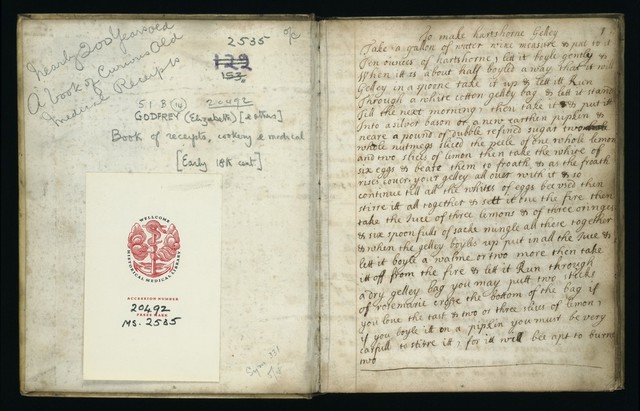 Nearly 200 Years old
A book of Curious Old
Medical Receipts
2535
153
S.I.B. 20492
GODFREY (Elizabeth) [& others]
Book of receipts, cookery & medical
[Early 18th cent]
WELLCOME
HISTORICAL MEDICAL LIBRARY
ACCESSION NUMBER
20492
PRESS MARK
MS. 2535
1
To make hartshorne Gelley
Take a gallon of water wine measure & put to it
Ten ounces of hartshorne; lett it boyle gently &
When itt is about half boyled away that it will
Gelley in a spoone take it up & lett itt Run
Through a white cotton gelley bag & lett it stand
Till the next morning; then take it & put it
Into a silver bason or a new earthen pipkin &
neare a pound of dubble refined sugar two
whole nutmegs sliced the peele of one whole lemon
and two slices of limon then take the white of
six eggs & beate them to froath & as the froath
rises cover your gelley all over with it & so
continue till all the whites of eggs bee used then
stirre itt all together & sett it one the fire then
take the Juce of three lemons & of three oringes
& six spoonfulls of sacke mingle all these together
& when the gelley boyles up put in all the Juce &
lett it boyle a walme or two more then take
itt off from the fire & lett it Run through
a dry gelley bag you may putt two sticks
of rosemarie crose the bottom of the bag if
you love the tast & two or three slises of limon;
if you boyle itt on a pipkin you must be very
carfull to stirre itt; for itt will bee apt to burne
two